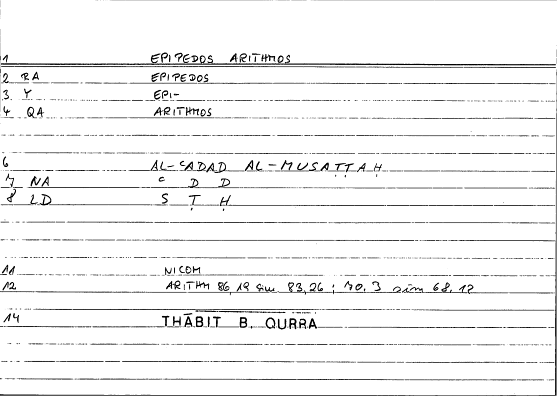 1 EPIPEDOS ARITHMOS
2 RA EPIPEDOS
3 Y EPI-
4 QA ARITHMOS
6 AL-ʿADAD AL-MUSAṬṬAḤ
7 NA ʿ D D
8 LD S Ṭ Ḥ
11 NICOM
12 ARITHM 86,19 sim. 83,26 ; 70,3 sim 68,12
14 THĀBIT B. QURRA